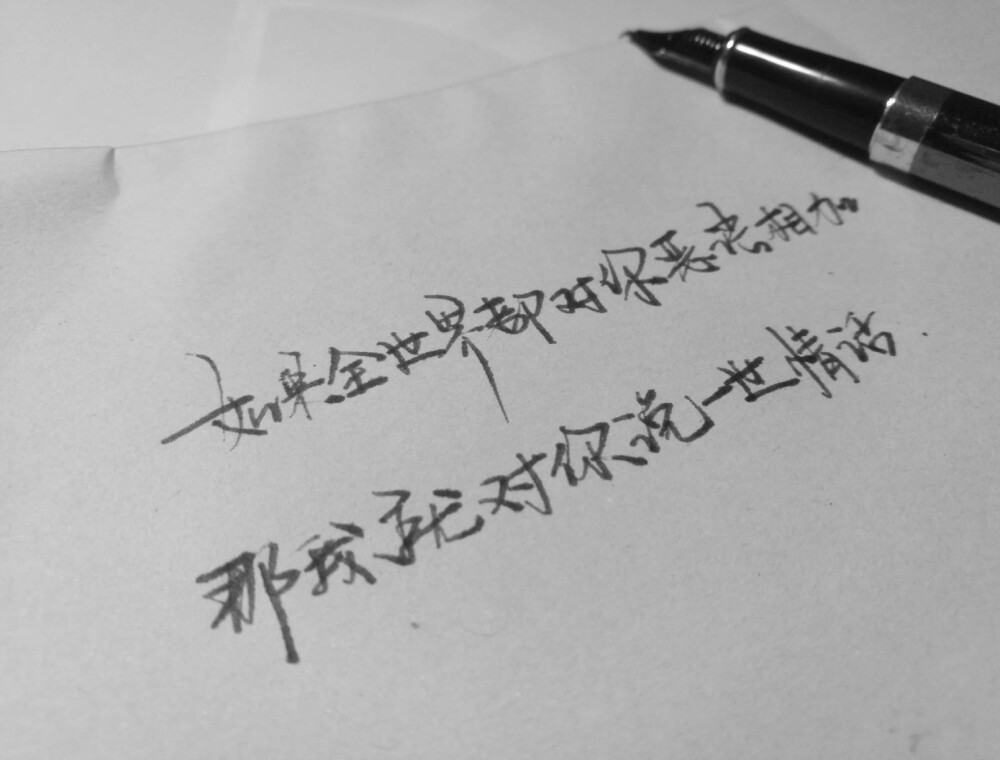 如果全世界都对你恶语相加
那我就对你说一世情话.